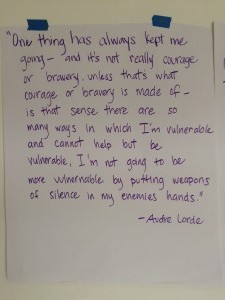 "One thing has always kept me
going - and it's not really courage
or bravery, unless that's what
courage or bravery is made of -
is that sense there are so
many ways in which I'm vulnerable
and cannot help but be
vulnerable, I'm not going to be
more vulnerable by putting weapons
of silence in my enemies hands."
- Audre Lorde